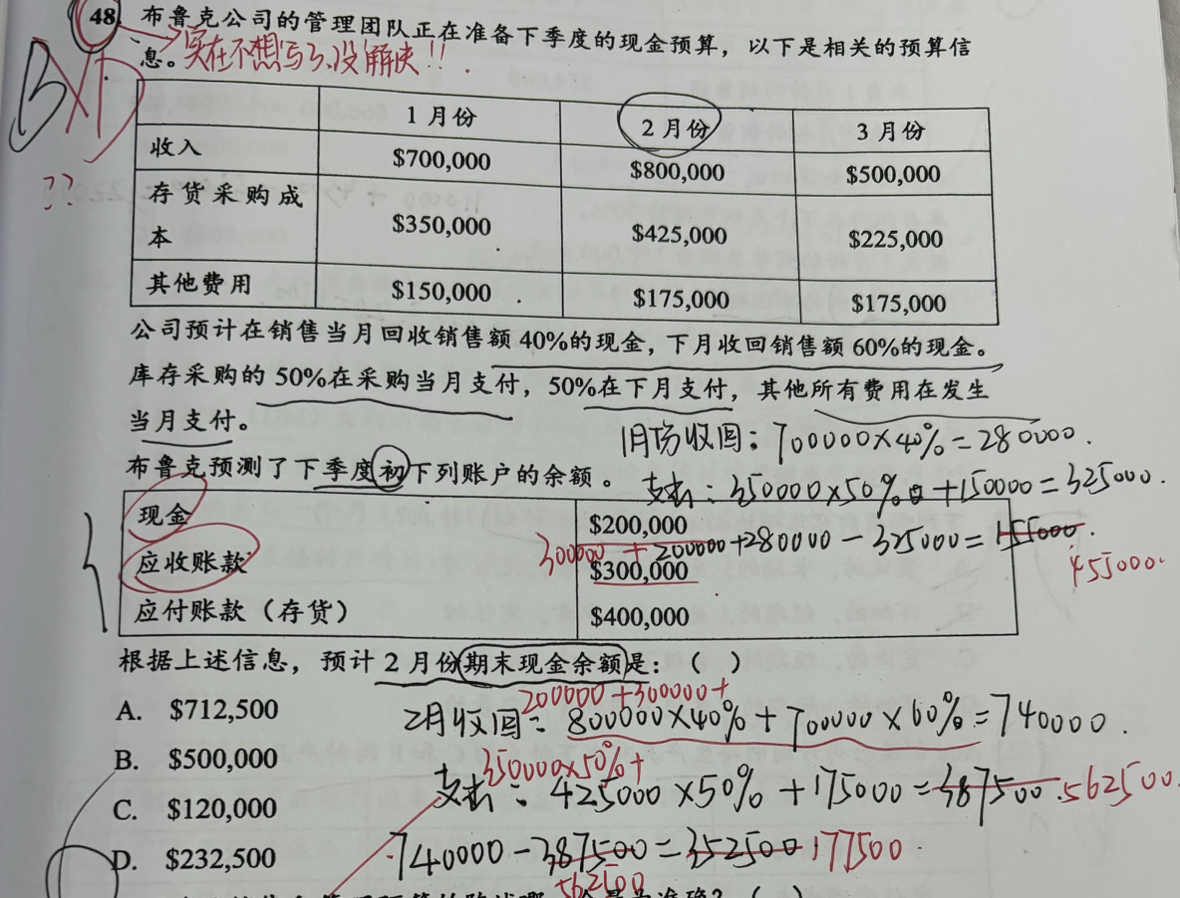 48. 布鲁克公司的管理团队正在准备下季度的现金预算，以下是相关的预算信
息。实在不想写了、没解决!!.
BXD
??
1月份 2月份 3月份
收入 $700,000 $800,000 $500,000
存货采购成
本 $350,000 $425,000 $225,000
其他费用 $150,000 $175,000 $175,000
公司预计在销售当月回收销售额 40%的现金，下月收回销售额 60%的现金。
库存采购的 50%在采购当月支付，50%在下月支付，其他所有费用在发生
当月支付。
1月份收回：700000×40%=280000.
布鲁克预测了下季度初下列账户的余额。
支出：350000×50%+150000=325000.
现金 $200,000
300000+200000+280000-325000=155000.
455000.
应收账款 $300,000
应付账款（存货） $400,000
根据上述信息，预计 2 月份期末现金余额是：（ ）
200000+300000+
A. $712,500
2月收回：800000×40%+700000×60%=740000.
B. $500,000
350000×50%+
支出：425000×50%+175000=387500.562500
C. $120,000
D. $232,500
740000-387500=352500.177500.
562500